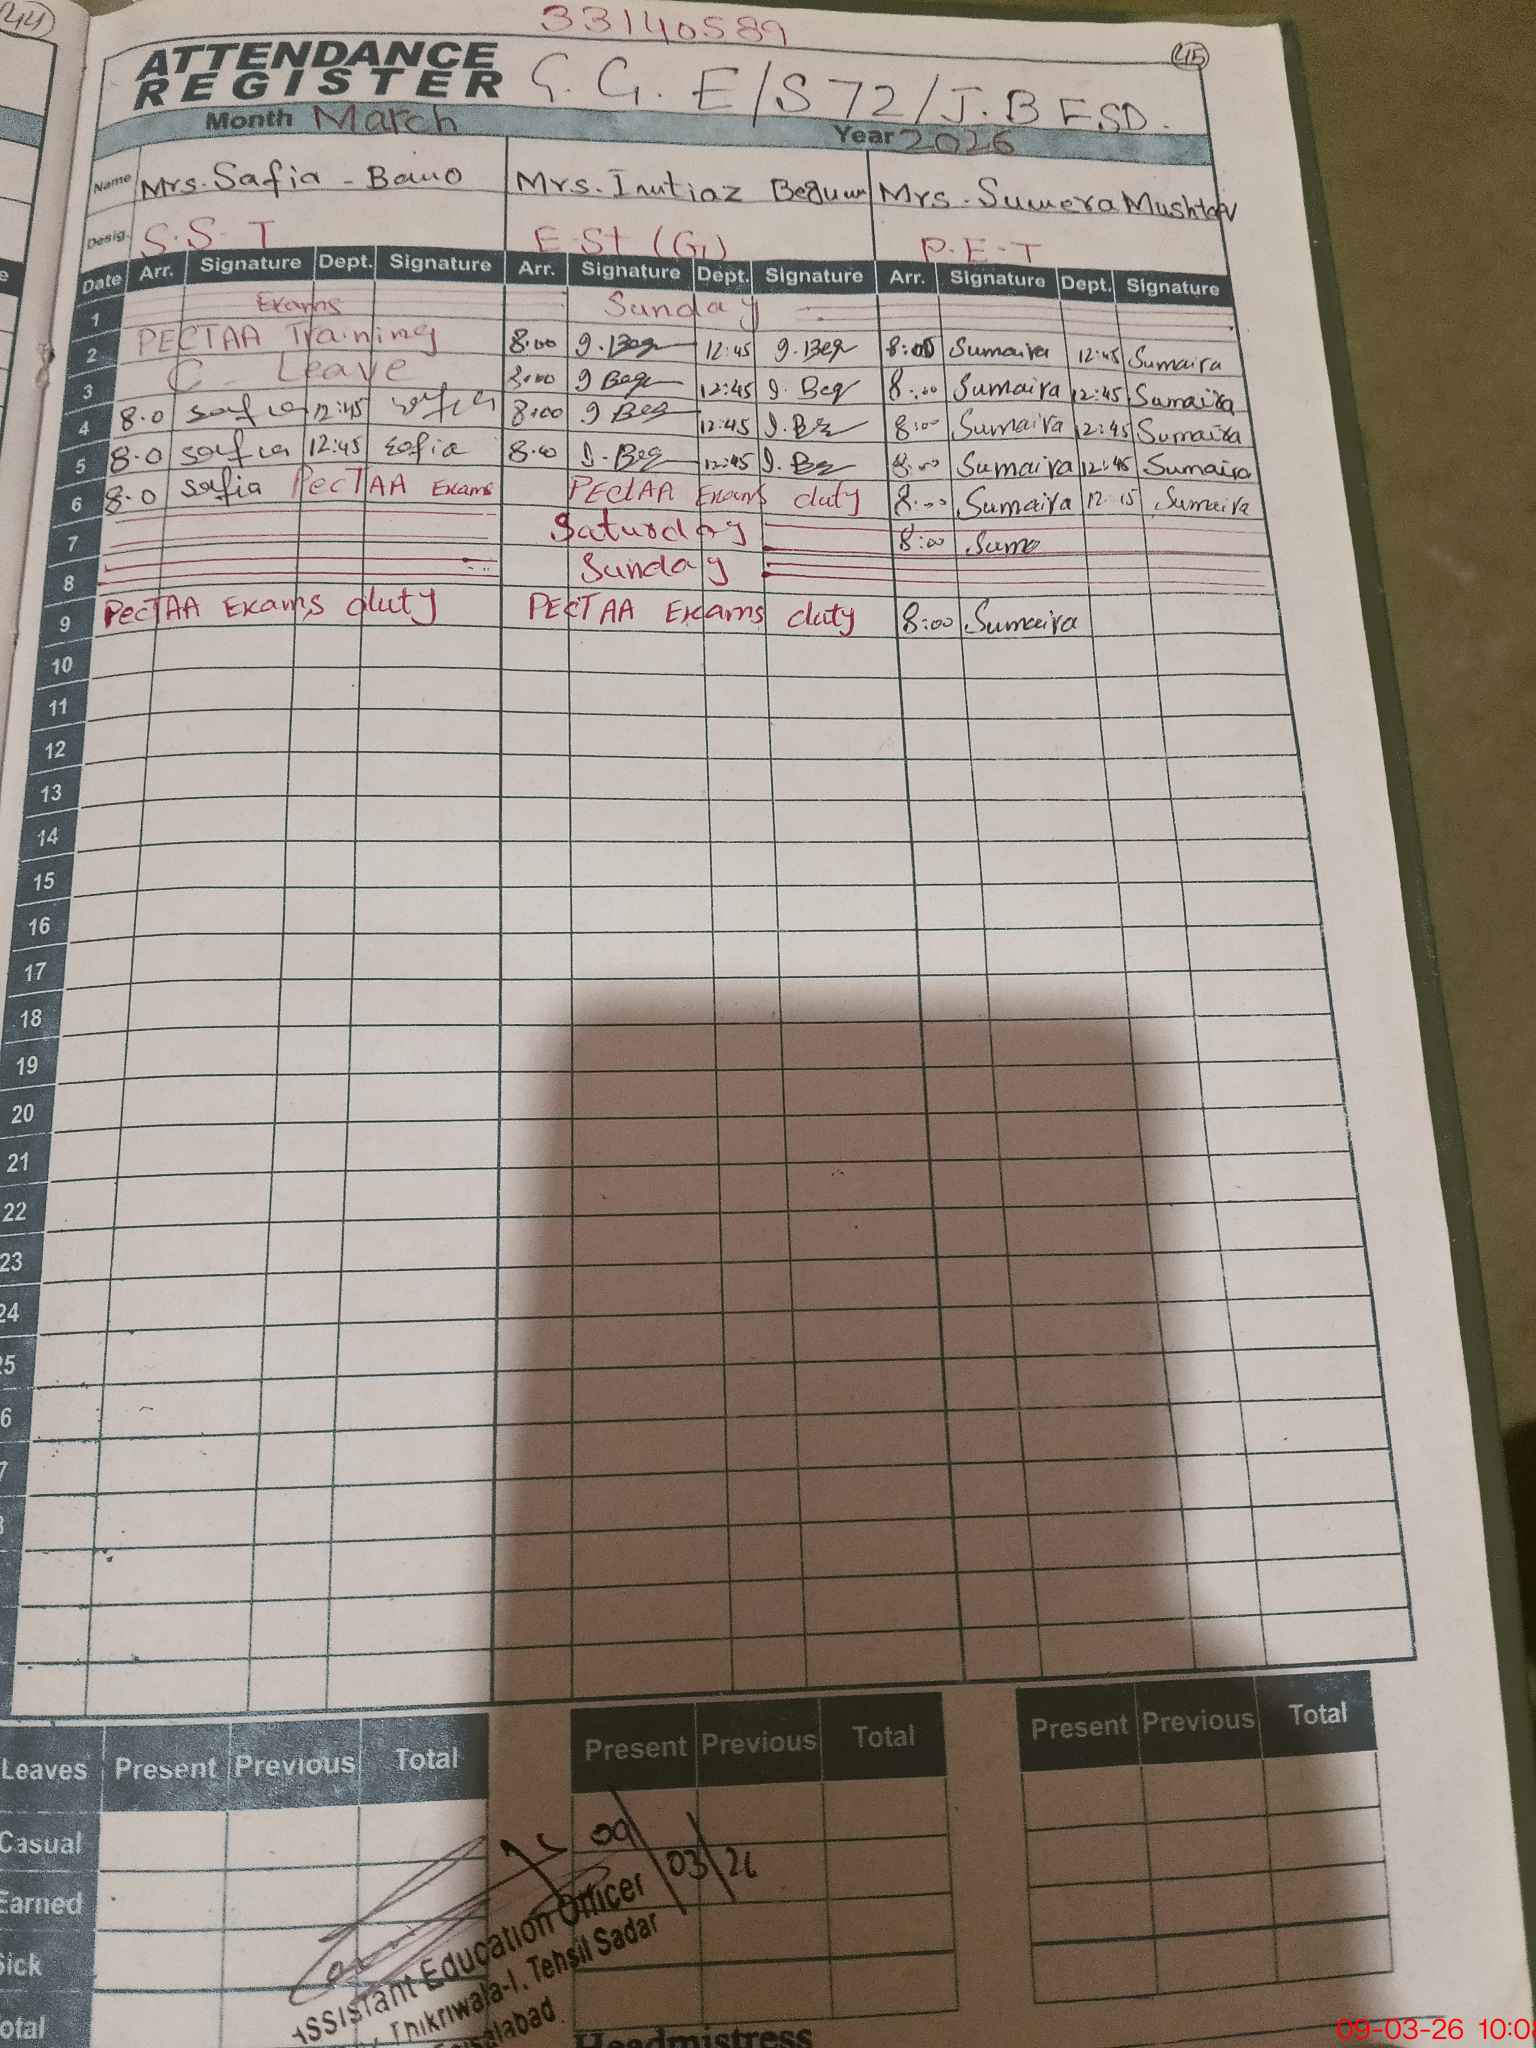 44
33140589
45
ATTENDANCE REGISTER G.G. E/S 72/J.B FSD.
Month March Year 2026
Name Mrs. Safia - Bano Mrs. Imtiaz Begum Mrs. Sumera Mushtaq
Desig. S.S.T E.St (G) P.E.T
Date Arr. Signature Dept. Signature Arr. Signature Dept. Signature Arr. Signature Dept. Signature
1 Exams Sunday
2 PECTAA Training 8:00 I.Beg 12:45 I.Beg 8:00 Sumaira 12:45 Sumaira
3 C - Leave 8:00 I Beg 12:45 I. Beg 8:00 Sumaira 12:45 Sumaira
4 8.0 safia 12:45 safia 8:00 I Beg 12:45 I. Beg 8:00 Sumaira 12:45 Sumaira
5 8.0 safia 12:45 safia 8:00 I. Beg 12:45 I. Beg 8:00 Sumaira 12:45 Sumaira
6 8.0 safia PecTAA Exams PECTAA Exams duty 8:00 Sumaira 12:15 Sumaira
7 Saturday 8:00 Suma
8 Sunday
9 PecTAA Exams duty PECTAA Exams duty 8:00 Sumaira
10
11
12
13
14
15
16
17
18
19
20
21
22
23
24
25
6
7
Leaves Present Previous Total Present Previous Total Present Previous Total
Casual
Earned
Sick
Total
09/03/26
Assistant Education Officer
Thikriwala-I, Tehsil Sadar
Faisalabad.
Headmistress
09-03-26 10:0